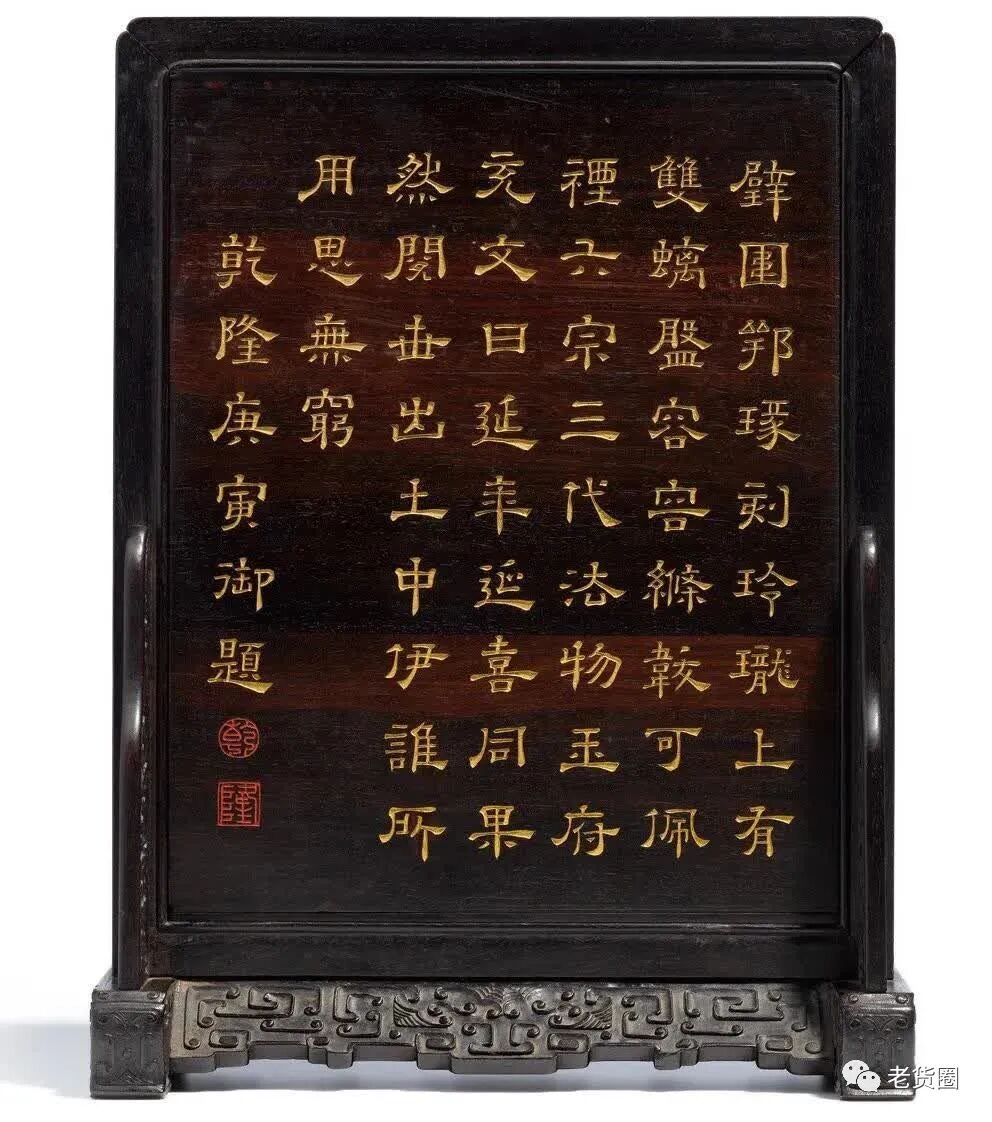 璧圍琢刻玲瓏上有
雙螭盤容容縧韍可佩
禋六宗三代法物玉府
充文曰延年延喜同果
然閱世出土中伊誰所
用思無窮
乾隆庚寅御題
乾
隆
老货圈